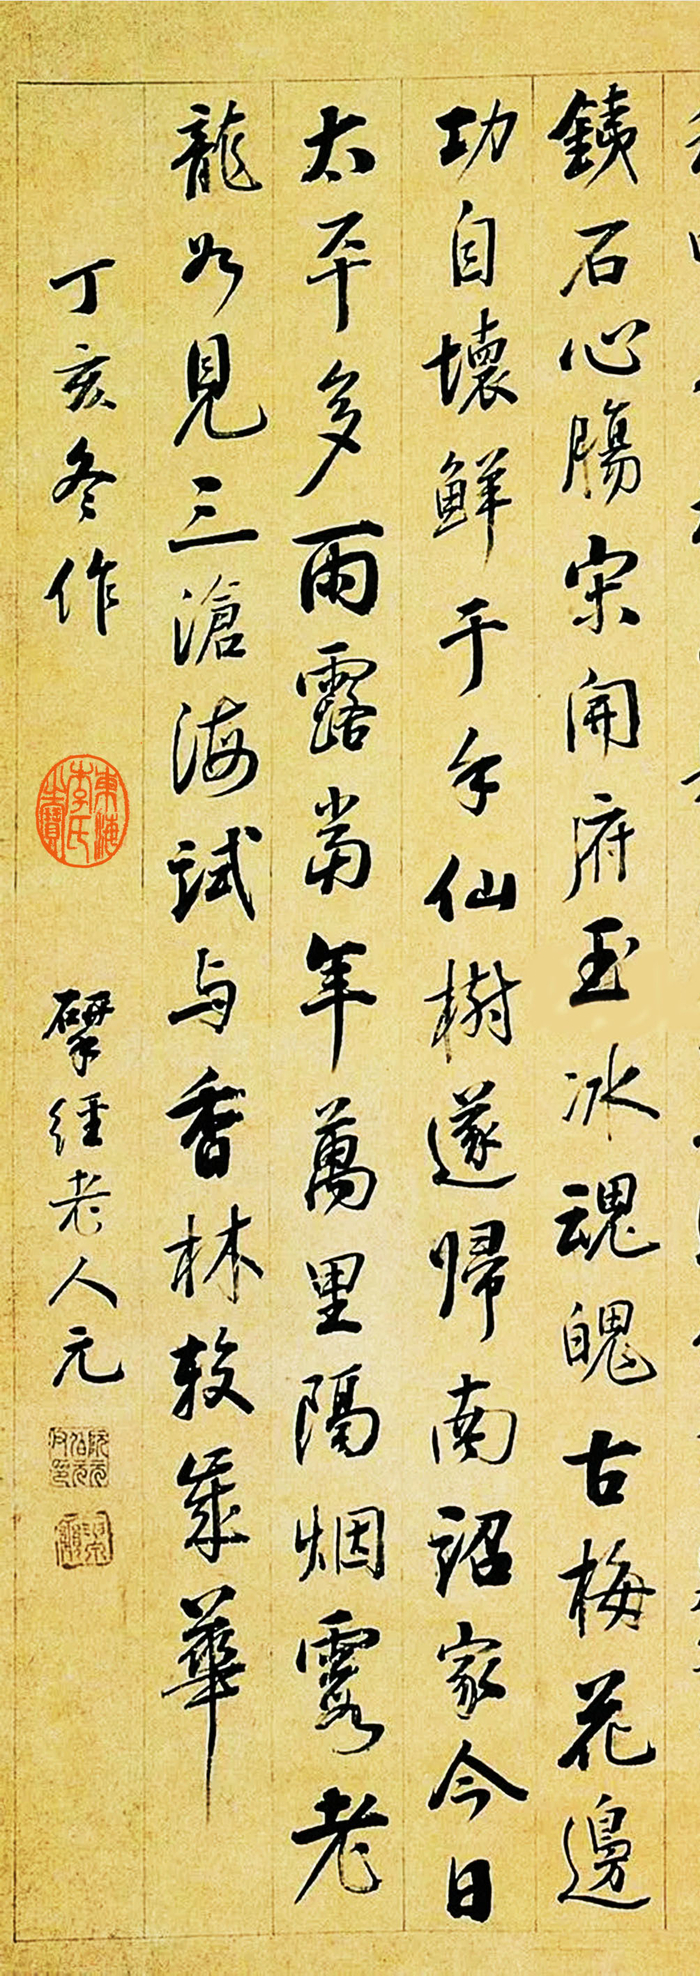 銕石心腸宋開府玉冰魂魄古梅花邊
功自壞鮮于手仙樹遂歸南詔家今日
太平多雨露當年萬里隔烟霞老
龍如見三滄海試与香林較歲華
丁亥冬作
東海李氏之寶
揅經老人元